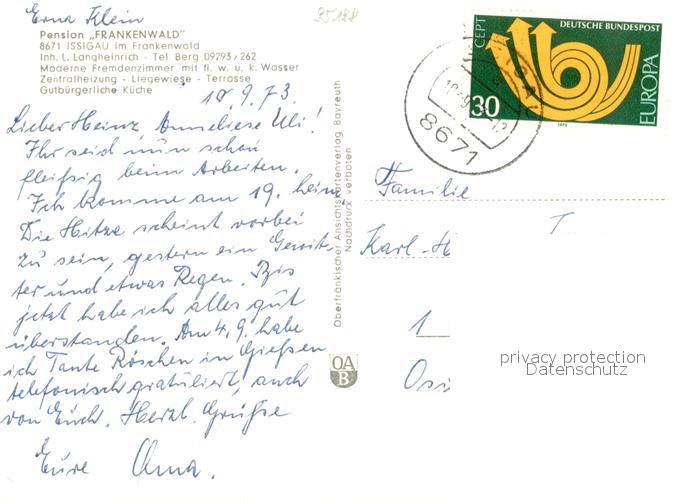 Erna Klein
95188
Pension „FRANKENWALD"
8671 ISSIGAU im Frankenwald
Inh. L. Langheinrich - Tel. Berg 09293/262
Moderne Fremdenzimmer mit fl. w. u. k. Wasser
Zentralheizung - Liegewiese - Terrasse
Gutbürgerliche Küche
10.9.73.
Lieber Heinz, Anneliese Uli!
Ihr seid nun schon
fleißig beim Arbeiten.
Ich komme am 19. heim,
Die Hitze scheint vorbei
zu sein, gestern ein Gewit-
ter und etwas Regen. Bis
jetzt habe ich alles gut
überstanden. Am 4.9. habe
ich Tante Röschen in Gießen
telefonisch gratuliert, auch
von Euch. Herzl. Grüße
Eure Oma.
Oberfränkischer Ansichtskartenverlag Bayreuth
Nachdruck verboten
OA
B
CEPT
DEUTSCHE BUNDESPOST
EUROPA
30
1973
8671
Familie
T
Karl-H
1
privacy protection
Datenschutz